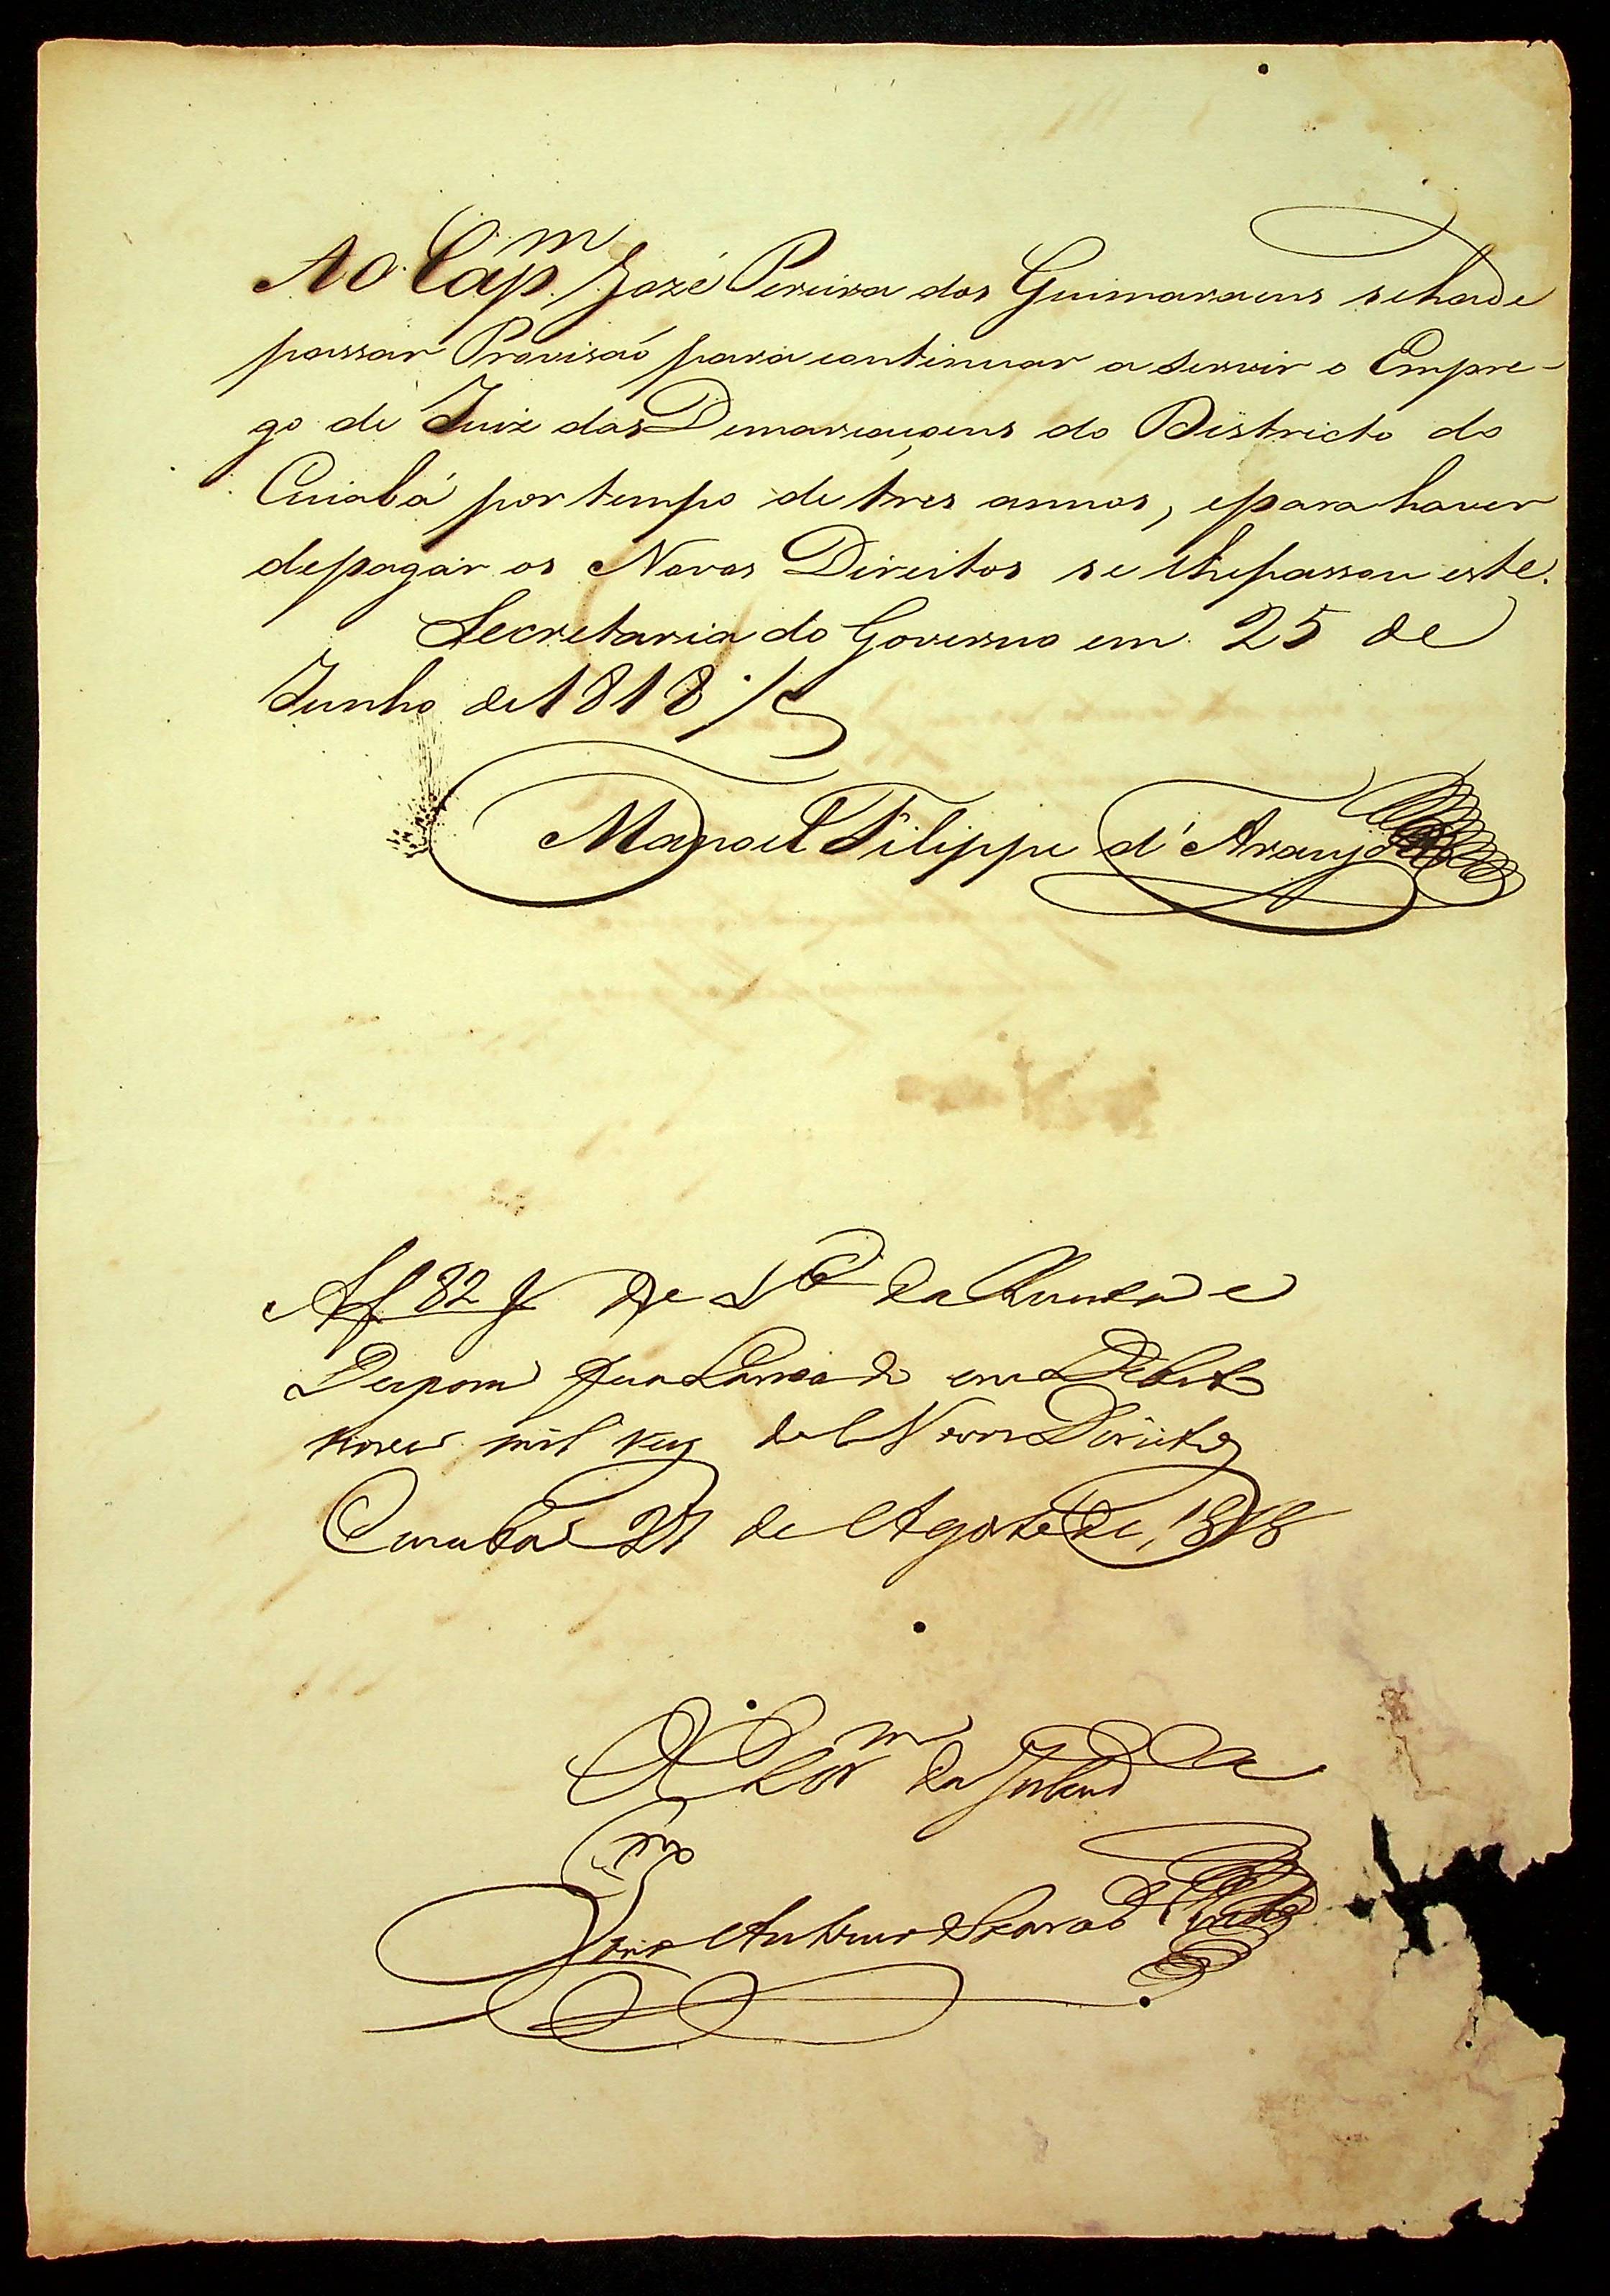 Ao Cap.m Jozé Pereira dos Guimaraens se hade
passar Provisaõ para continuar a servir o Empre-
go de Juiz das Demarcaçoens do Districto do
Cuiabá por tempo de tres annos, e para haver
de pagar os Novos Direitos se lhe passou este.
Secretaria do Governo em 25 de
Junho de 1818
Manoel Filippe d'Araujo
Af 82 de da
em
mil de Novos Direitos
Cuiabá 27 de Agosto de 1818
da
Antonio